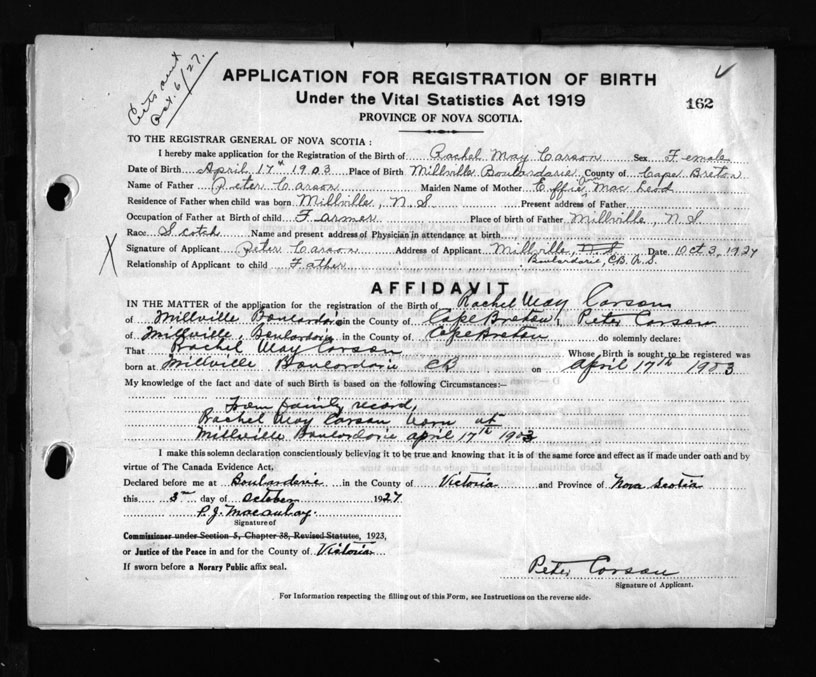 Certs sent
Oct. 6/27.
APPLICATION FOR REGISTRATION OF BIRTH
Under the Vital Statistics Act 1919
162
PROVINCE OF NOVA SCOTIA.
TO THE REGISTRAR GENERAL OF NOVA SCOTIA :
I hereby make application for the Registration of the Birth of Rachel May Carson Sex Female
Date of Birth April 17th 1903 Place of Birth Millville Boulardarie County of Cape Breton
Name of Father Peter Carson Maiden Name of Mother Effie MacLeod
Residence of Father when child was born Millville, N. S Present address of Father
Occupation of Father at Birth of child Farmer Place of birth of Father Millville, N. S.
Race Scotch Name and present address of Physician in attendance at birth
X Signature of Applicant Peter Carson Address of Applicant Millville, N. S Date Oct 3, 1927
Relationship of Applicant to child Father Boulardarie, C.B. N.S.
AFFIDAVIT
IN THE MATTER of the application for the registration of the Birth of Rachel May Carson
of Millville Boulardarie in the County of Cape Breton, Peter Carson
of Millville, Boulardarie in the County of Cape Breton do solemnly declare:
That Rachel May Carson Whose Birth is sought to be registered was
born at Millville Boulardarie CB on April 17th 1903
My knowledge of the fact and date of such Birth is based on the following Circumstances:–
From family record,
Rachel May Carson born at
Millville Boulardarie april 17th 1903
I make this solemn declaration conscientiously believing it to be true and knowing that it is of the same force and effect as if made under oath and by
virtue of The Canada Evidence Act,
Declared before me at Boulardarie in the County of Victoria and Province of Nova Scotia
this 3rd day of October 1927
P. J. Macaulay.
Signature of
Commissioner under Section 5, Chapter 38, Revised Statutes, 1923,
or Justice of the Peace in and for the County of Victoria
If sworn before a Norary Public affix seal.
Peter Carson
Signature of Applicant.
For Information respecting the filling out of this Form, see Instructions on the reverse side.